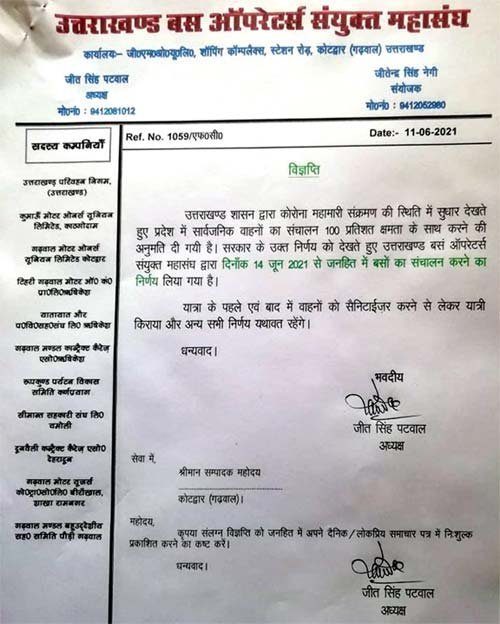 उत्तराखण्ड बस ऑपरेटर्स संयुक्त महासंघ
कार्यालयः- जी०एम०ओ०यू०लि०, शॉपिंग कॉम्पलैक्स, स्टेशन रोड़, कोटद्वार (गढ़वाल) उत्तराखण्ड
जीत सिंह पटवाल
अध्यक्ष
मो०नं० : 9412081012
जीतेन्द्र सिंह नेगी
संयोजक
मो०नं० : 9412052980
सदस्य कम्पनियाँ
उत्तराखण्ड परिवहन निगम,
(उत्तराखण्ड)
कुमाऊँ मोटर ओनर्स यूनियन
लिमिटेड, काठगोदाम
गढ़वाल मोटर ओनर्स
यूनियन लिमिटेड कोटद्वार
टिहरी गढ़वाल मोटर ऑ० कं०
प्रा०लि०ऋषिकेश
यातायात और
प०वि०सह०संघ लि०ऋषिकेश
गढ़वाल मण्डल कान्ट्रैक्ट कैरेज
एसो०ऋषिकेश
रूपकुण्ड पर्यटन विकास
समिति कर्णप्रयाग
सीमान्त सहकारी संघ लि०
चमोली
दूनवैली कन्ट्रैक्ट कैरेज एसो०
देहरादून
गढ़वाल मोटर यूजर्स
को०ट्रा०सो०लि० बीरोंखाल,
शाखा रामनगर
गढ़वाल मण्डल बहुउद्देशीय
सह० समिति पौड़ी गढ़वाल
Ref. No. 1059/एफ०सी०
Date:- 11-06-2021
विज्ञप्ति
उत्तराखण्ड शासन द्वारा कोरोना महामारी संक्रमण की स्थिति में सुधार देखते
हुए प्रदेश में सार्वजनिक वाहनों का संचालन 100 प्रतिशत क्षमता के साथ करने की
अनुमति दी गयी है। सरकार के उक्त निर्णय को देखते हुए उत्तराखण्ड बस ऑपरेटर्स
संयुक्त महासंघ द्वारा दिनाँक 14 जून 2021 से जनहित में बसों का संचालन करने का
निर्णय लिया गया है।
यात्रा के पहले एवं बाद में वाहनों को सैनिटाईज़र करने से लेकर यात्री
किराया और अन्य सभी निर्णय यथावत रहेंगे।
धन्यवाद।
भवदीय
जीत सिंह पटवाल
अध्यक्ष
सेवा में,
श्रीमान सम्पादक महोदय
कोटद्वार (गढ़वाल)।
महोदय,
कृपया संलग्न विज्ञप्ति को जनहित में अपने दैनिक/लोकप्रिय समाचार पत्र में निःशुल्क
प्रकाशित करने का कष्ट करें।
धन्यवाद।
जीत सिंह पटवाल
अध्यक्ष